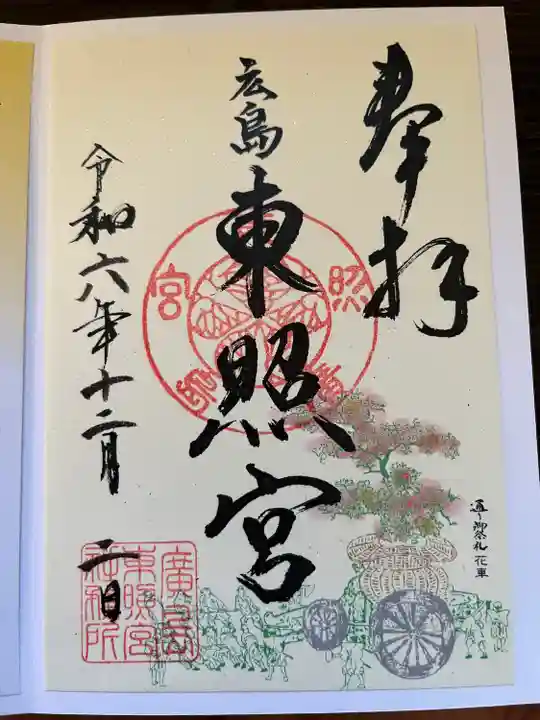 奉拝
広島
東照宮
令和六年十二月
二日
通り御祭礼 花車
照
宮
廣島
東照宮
社務所